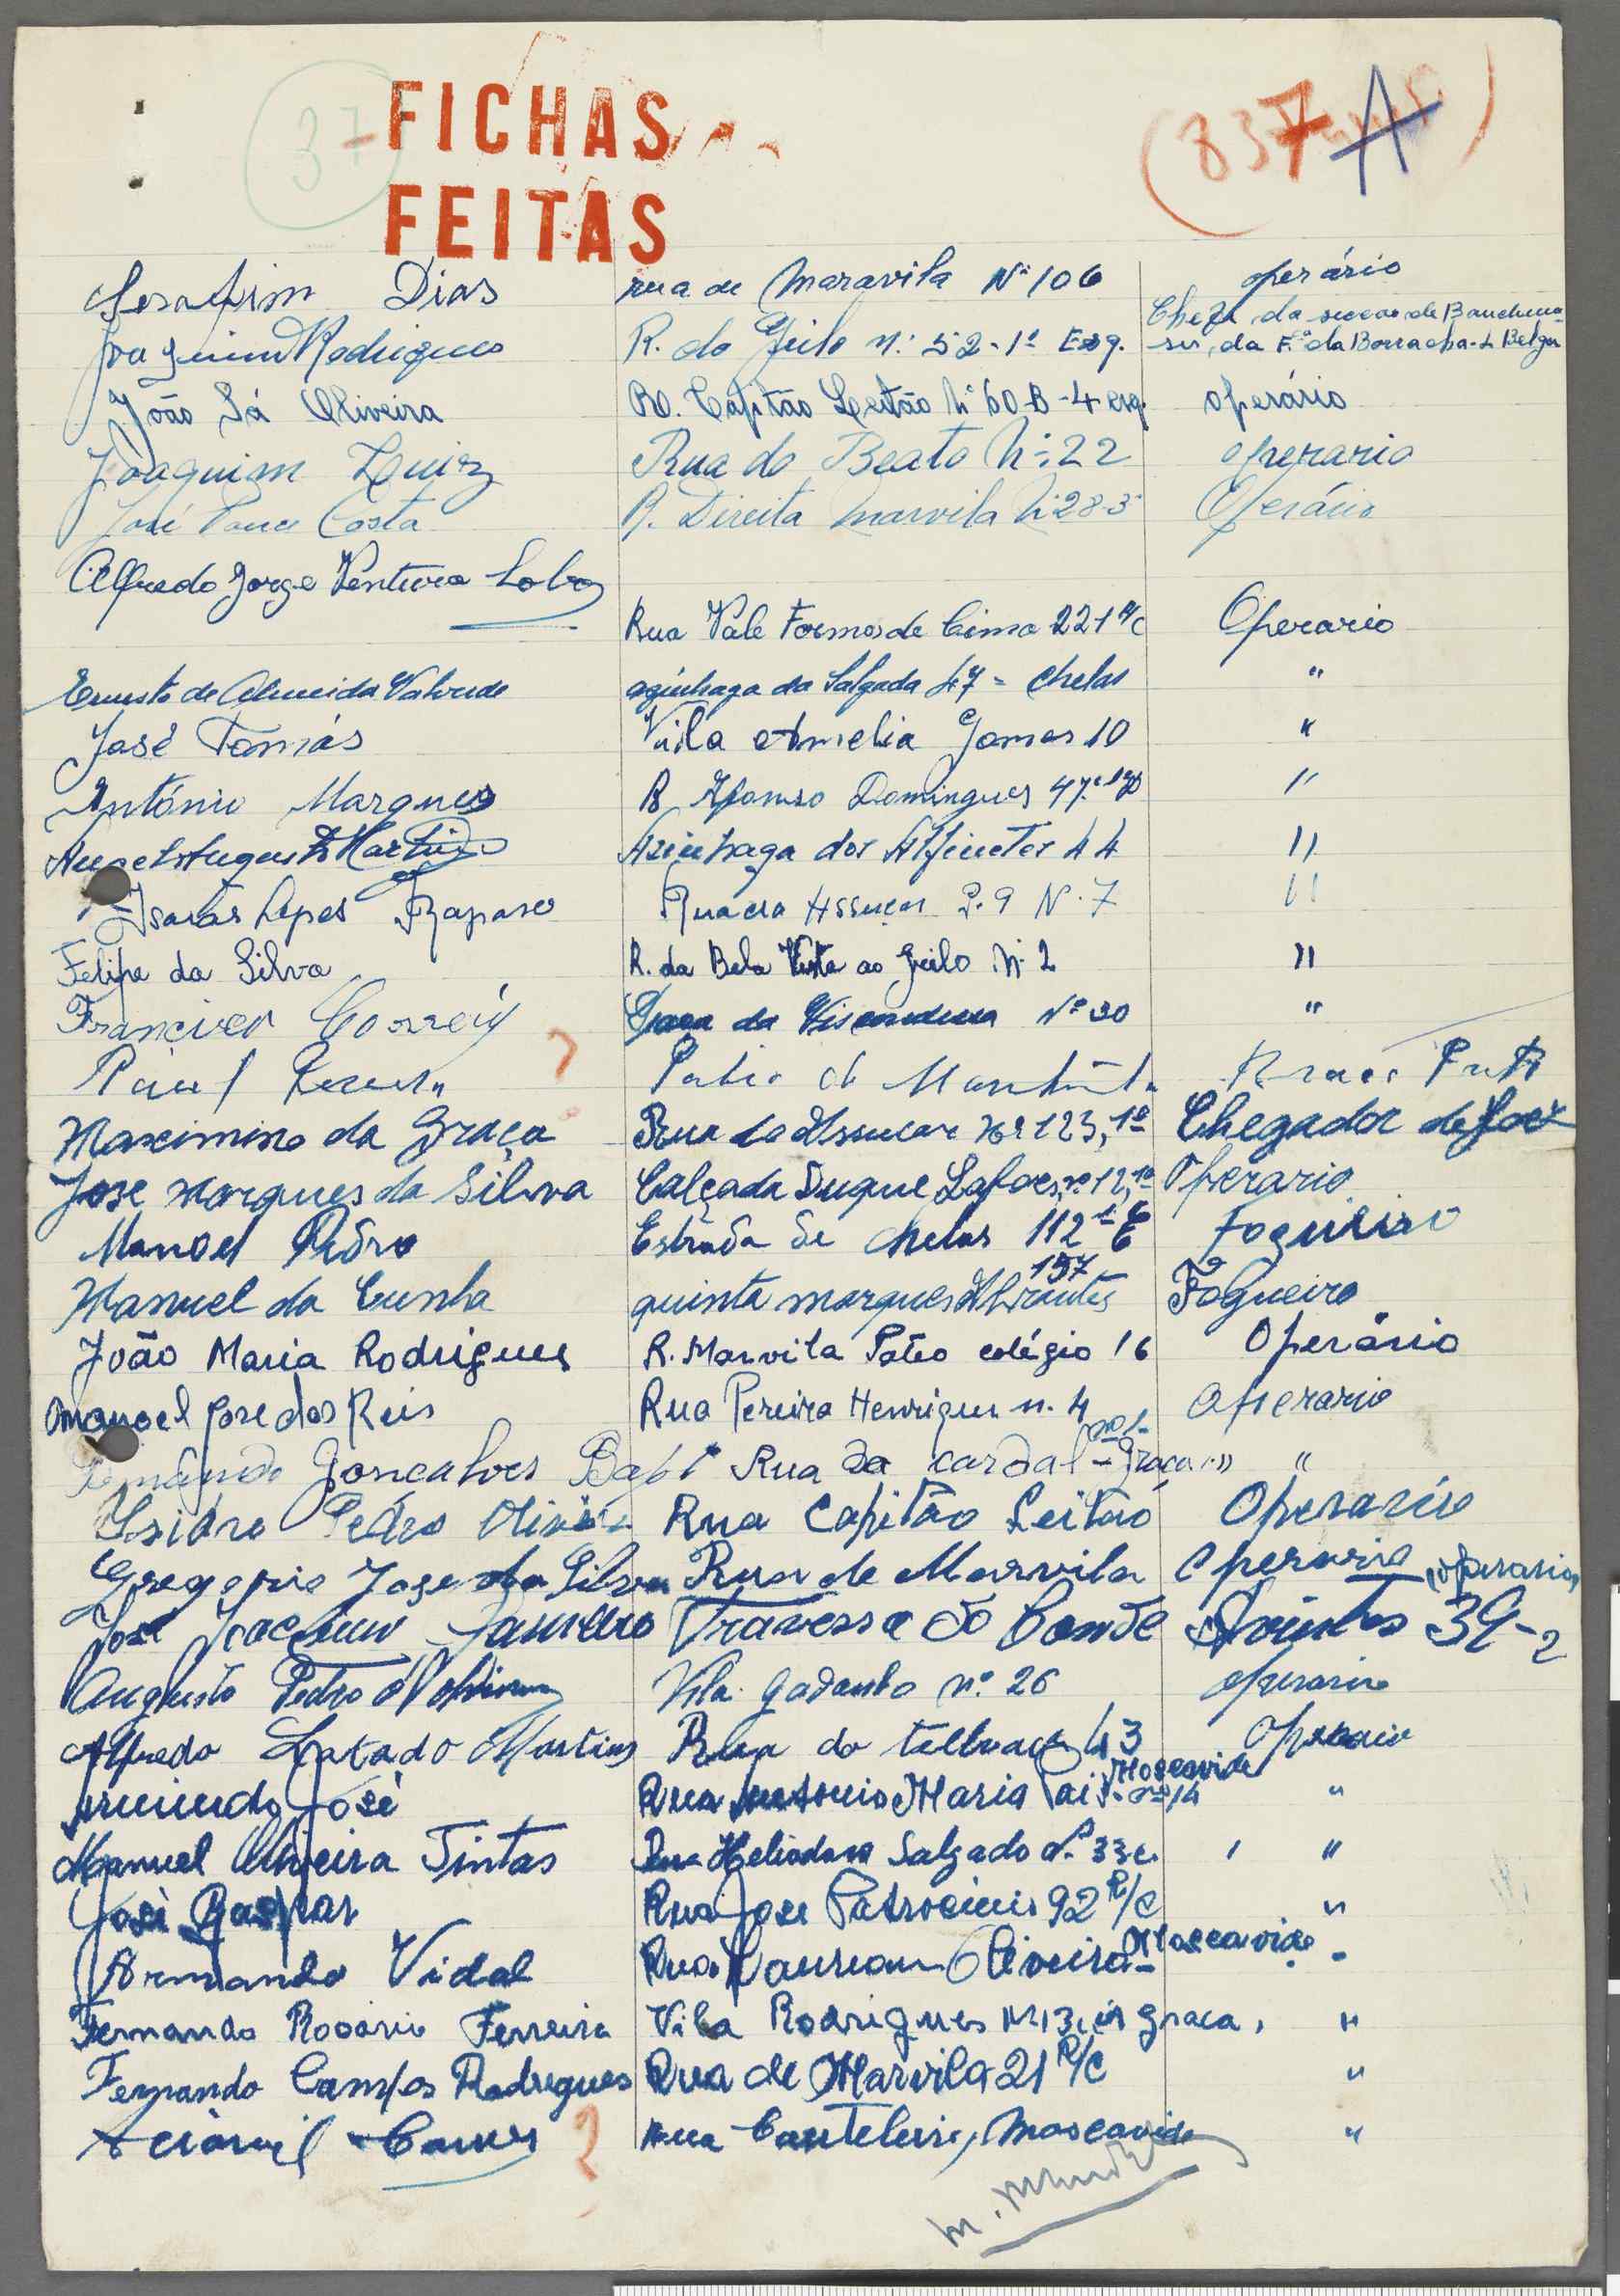 37
FICHAS
FEITAS
837 A
Serafim Dias rua de Maravila Nº 106 operário
Joaquim Rodrigues R. do Grilo n.º 52-1º Esq. Chefe da seccao de da F.ca da Borracha-L Belga
João Sá Oliveira R. Capitão Leitão Nº 60-B-4 esq. operário
Joaquim Luiz Rua do Beato Nº 22 operario
José Costa R. Direita Marvila Nº 28-3º Operário
Alfredo Jorge Ventura Lobo
Rua Vale Formoso de Cima 221 r/c Operario
Ernesto de Almeida Valverde azinhaga da Salgada 47 = Chelas "
José Tomás Vila Amelia Gomes 10 "
António Marques R. Afonso Domingues 47 "
Augusto Martins Azinhaga dos Alfinetes 44 "
Isaias Lopes Raposo Rua do Assucar P. 9 N. 7 "
Felipe da Silva R. da Bela Vista ao Grilo Nº 2 "
Francisco Correia da Viscondessa Nº 20 "
Raul Patio do
Maximino da Graça Rua do Assucar Nº 123, 1º Chegador de
Jose Marques da Silva Calçada Duque Lafoes nº 12, 1º Operario
Manoel Pedro Estrada de Chelas 112 1º E Fogueiro
Manuel da Cunha quinta marques Abrantes 157 Fogueiro
João Maria Rodrigues R. Marvila Páteo colégio 16 Operário
Manoel Jose dos Reis Rua Pereira Henriques n. 4 operario
Fernando Goncalves Bapt Rua da cardal - Graca " "
Isidro Pedro Oliveira Rua Capitão Leitão Operario
Gregorio Jose da Silva Rua de Marvila Operario
José Joaquim Travessa do Conde 39-2 (operario)
Augusto Pedro d'Oliveira Vila Gadanho nº 26 operario
Alfredo Martins Rua do 43 Operario
Armindo José Rua Antonio Maria Pais nº 14 Moscavide "
Manuel Oliveira Tintas Rua Heliodoro Salgado nº 33 "
José Gaspar Rua Jose Patrocinio 92 R/C "
Armando Vidal Rua Laureano Oliveira - Moscavide "
Fernando Rosário Ferreira Vila Rodrigues Nº 13 Graca, "
Fernando Campos Rodrigues Rua de Marvila 21 R/C "
Rua Moscavide "